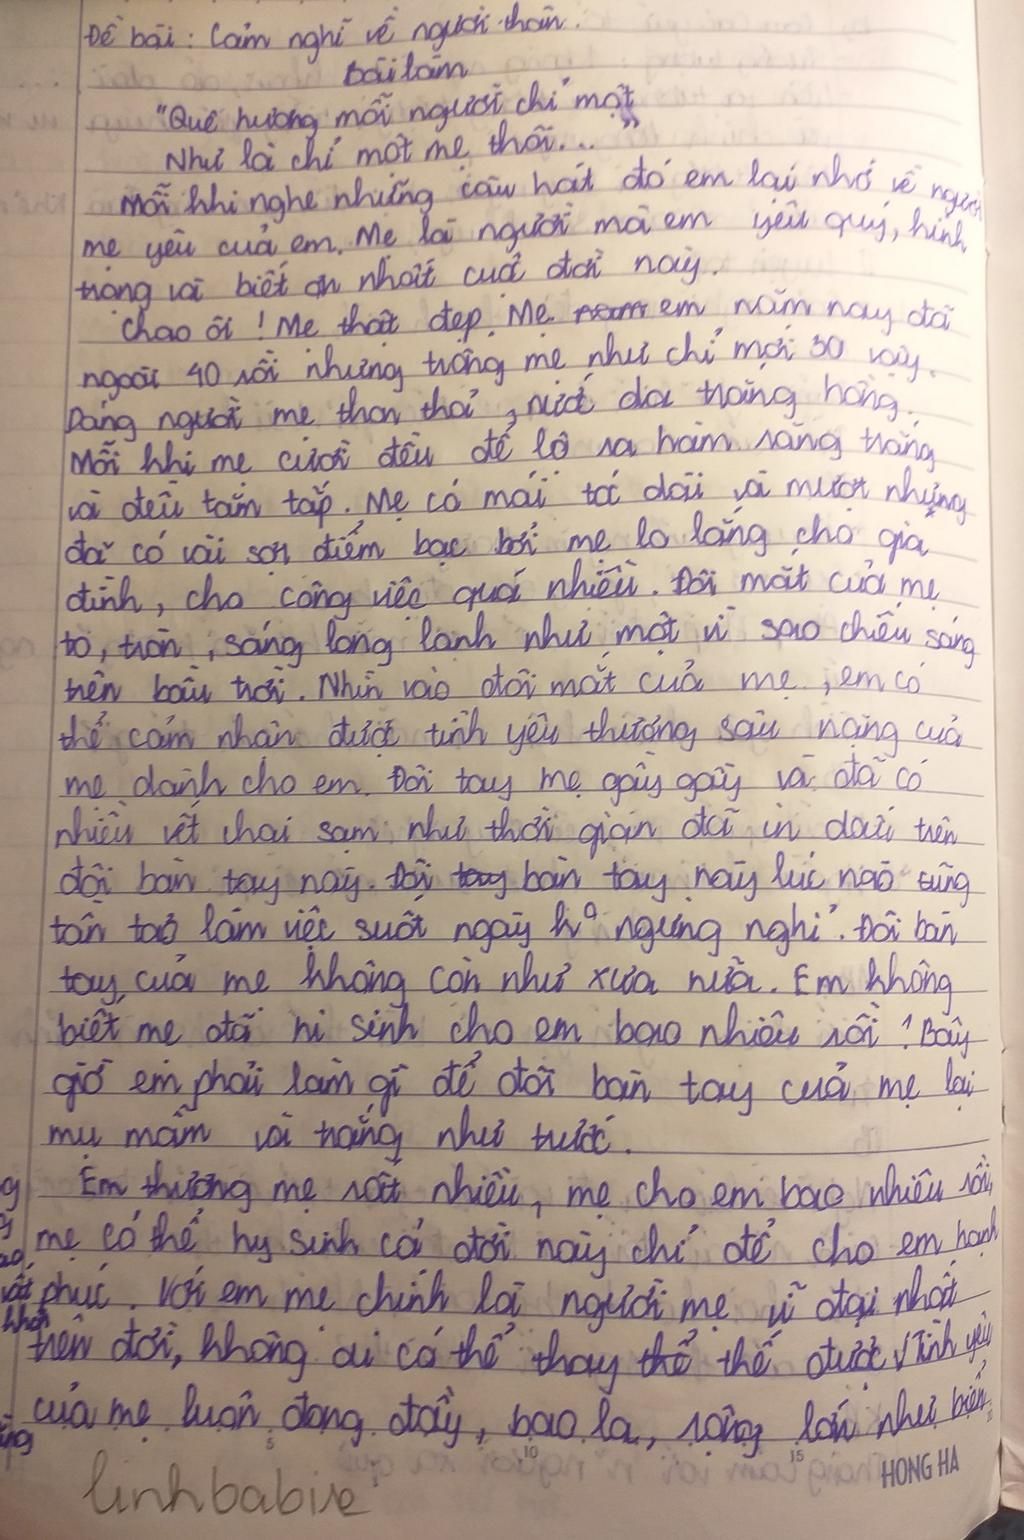 Đề bài: Cảm nghĩ về người thân.
Bài làm
"Quê hương mỗi người chỉ một
Như là chỉ một mẹ thôi..."
Mỗi khi nghe những câu hát đó em lại nhớ về người
mẹ yêu của em. Mẹ là người mà em yêu quý, kính
trọng và biết ơn nhất cuộc đời này.
Chao ôi! Mẹ thật đẹp. Mẹ em năm nay đã
ngoài 40 rồi nhưng trông mẹ như chỉ mới 30 vậy.
Dáng người mẹ thon thả, nước da trắng hồng.
Mỗi khi mẹ cười đều để lộ ra hàm răng trắng
và đều tăm tắp. Mẹ có mái tóc dài và mượt nhưng
đã có vài sợi điểm bạc bởi mẹ lo lắng cho gia
đình, cho công việc quá nhiều. Đôi mắt của mẹ
to, tròn, sáng long lanh như một vì sao chiếu sáng
trên bầu trời. Nhìn vào đôi mắt của mẹ, em có
thể cảm nhận được tình yêu thương sâu nặng của
mẹ dành cho em. Đôi tay mẹ gầy gầy và đã có
nhiều vết chai sạn như thời gian đã in dấu trên
đôi bàn tay này. Đôi bàn tay này lúc nào cũng
tần tảo làm việc suốt ngày k° ngừng nghỉ. Đôi bàn
tay của mẹ không còn như xưa nữa. Em không
biết mẹ đã hi sinh cho em bao nhiêu rồi? Bây
giờ em phải làm gì để đôi bàn tay của mẹ lại
mụ mẫm và trắng như trước.
Em thương mẹ rất nhiều, mẹ cho em bao nhiêu rồi,
mẹ có thể hy sinh cả đời này chỉ để cho em hạnh
phúc. Với em mẹ chính là người mẹ vĩ đại nhất
trên đời, không ai có thể thay thế được. Tình yêu
của mẹ luôn đong đầy, bao la, rộng lớn như biển
5 10 15
HONG HA
linhbabie